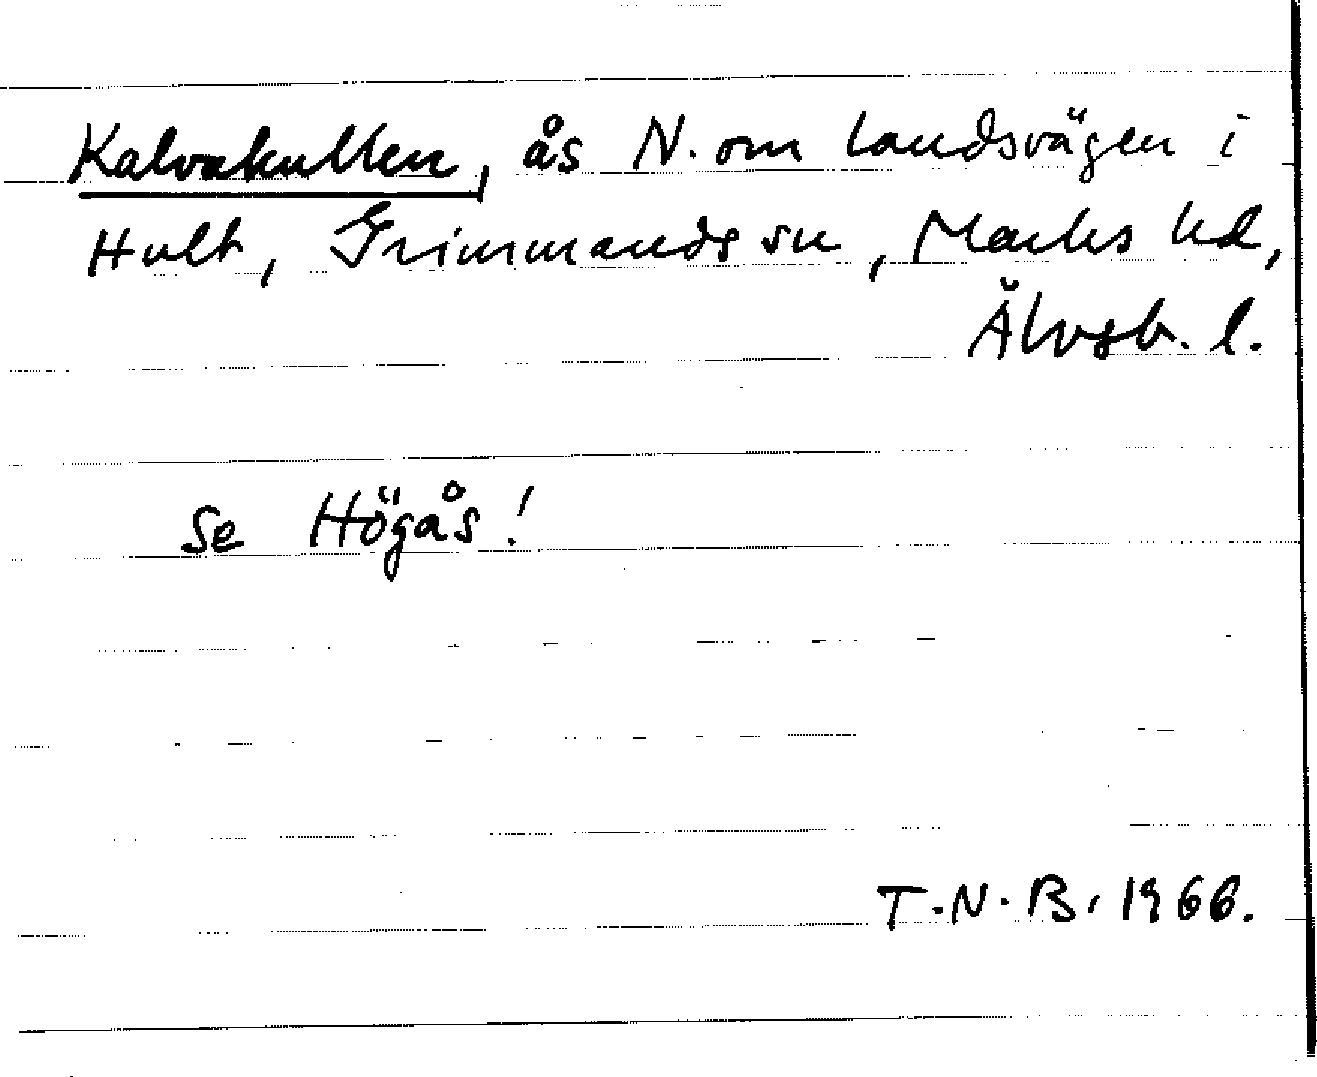 Kalvakullen, ås N. om landsvägen i
Hult, Grimmareds sn, Marks hd,
Älvsb. l.
Se Högås!
T.N.B. 1966.